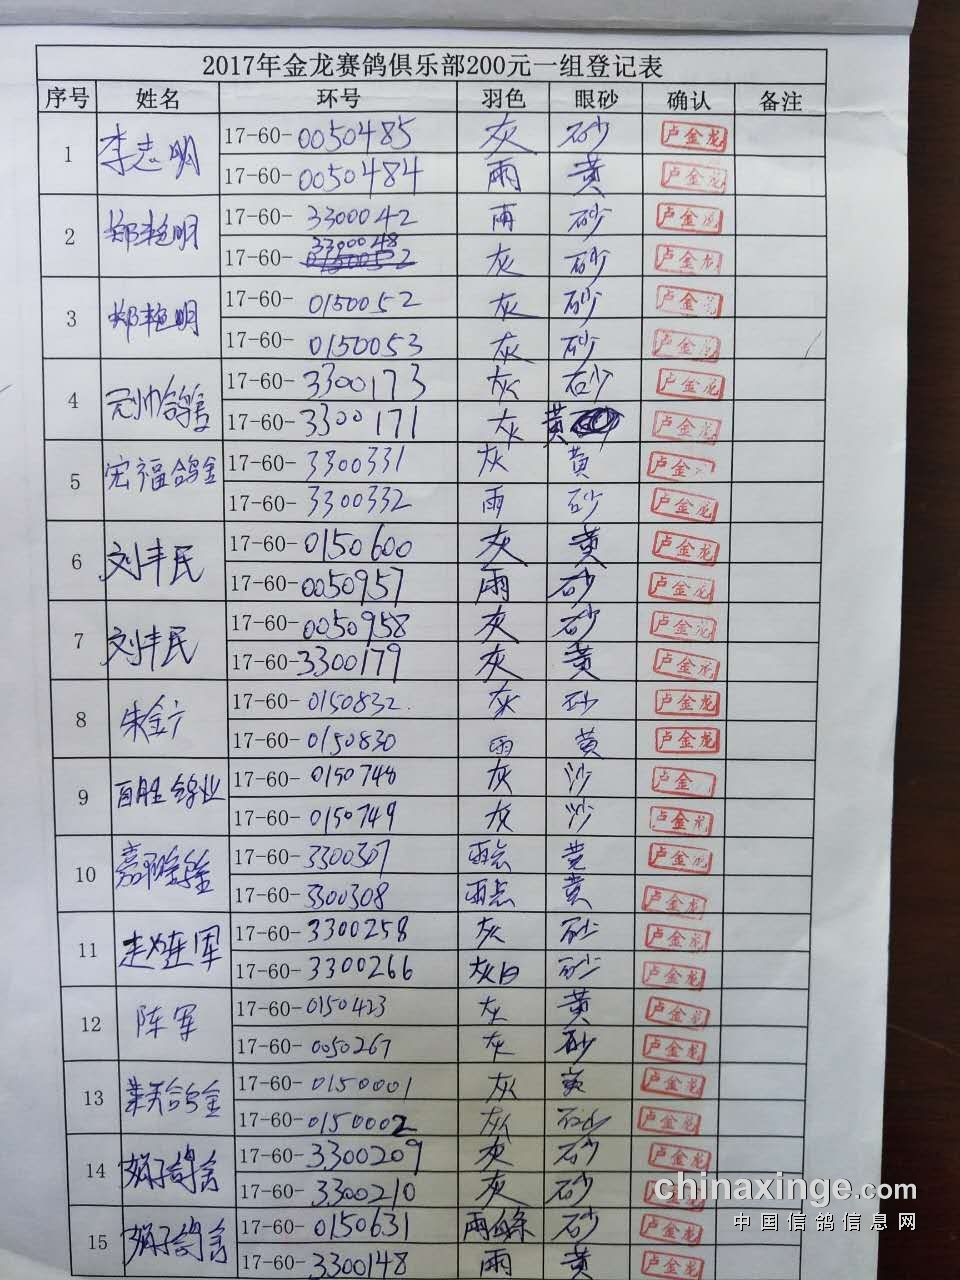 2017年金龙赛鸽俱乐部200元一组登记表
序号 姓名 环号 羽色 眼砂 确认 备注
1 李志明 17-60-0050485 灰 砂 卢金龙
17-60-0050484 雨 黄 卢金龙
2 郑艳明 17-60-3300042 雨 砂 卢金龙
17-60-3300048 灰 砂 卢金龙
3 郑艳明 17-60-0150052 灰 砂 卢金龙
17-60-0150053 灰 砂 卢金龙
4 17-60-3300173 灰 砂 卢金龙
17-60-3300171 灰 黄 卢金龙
5 宏福鸽舍 17-60-3300331 灰 黄 卢金龙
17-60-3300332 雨 砂 卢金龙
6 刘丰民 17-60-0150600 灰 黄 卢金龙
17-60-0050957 雨 砂 卢金龙
7 刘丰民 17-60-0050958 灰 砂 卢金龙
17-60-3300179 灰 黄 卢金龙
8 朱金广 17-60-0150832 灰 砂 卢金龙
17-60-0150830 雨 黄 卢金龙
9 百胜鸽业 17-60-0150748 灰 沙 卢金
17-60-0150749 灰 沙 卢金龙
10 17-60-3300307 雨点 黄 卢金龙
17-60-3300308 雨点 黄 卢金龙
11 赵连军 17-60-3300258 灰 砂 卢金龙
17-60-3300266 灰白 砂 卢金龙
12 陈军 17-60-0150423 灰 黄 卢金龙
17-60-0050267 灰 砂 卢金龙
13 17-60-0150001 灰 黄 卢金龙
17-60-0150002 灰 砂 卢金龙
14 娟子鸽舍 17-60-3300209 灰 砂 卢金龙
17-60-3300210 灰 砂 卢金龙
15 娟子鸽舍 17-60-0150631 雨白条 砂 卢金龙
17-60-3300148 雨 黄 卢金龙
chinaxinge.com
中国信鸽信息网